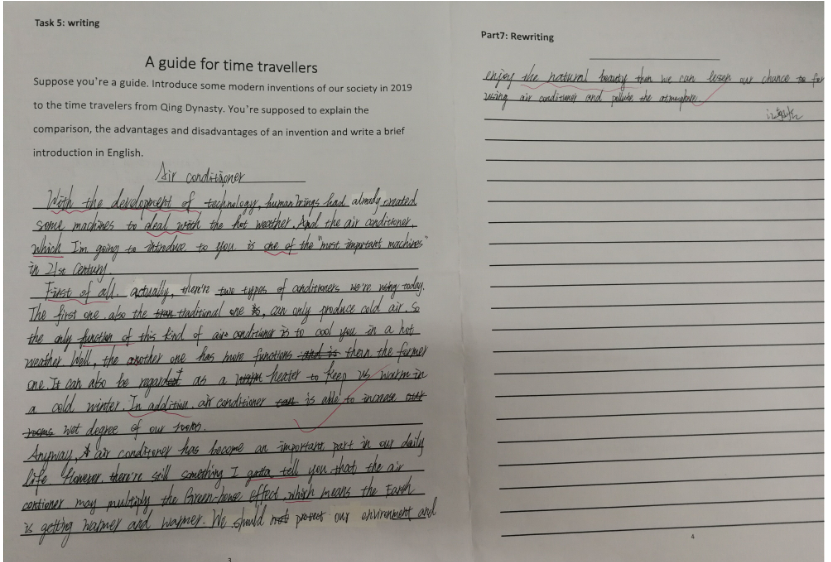 Task 5: writing
A guide for time travellers
Suppose you're a guide. Introduce some modern inventions of our society in 2019
to the time travelers from Qing Dynasty. You're supposed to explain the
comparison, the advantages and disadvantages of an invention and write a brief
introduction in English.
Air conditioner
With the development of technology, human beings had already created
some machines to deal with the hot weather. And the air conditioner,
which I'm going to introduce to you is one of the "most important machines"
in 21st Century
First of all, actually, there're two types of conditioners we're using today.
The first one, also the traditional one is, can only produce cold air, so
the only function of this kind of air conditioner is to cool you in a hot
weather. Well, the another one has more functions and is than the former
one. It can also be regard as a heater to keep us warm in
a cold winter. In addition, air conditioner is able to increase our
rooms wet degree of our rooms.
Anyway, A air conditioner has become an important part in our daily
life However, there're still something I gotta tell you that the air
contioner may multiply the Green-house effect, which means the Earth
is getting warmer and warmer. We should not protect our environment and
3
Part7: Rewriting
enjoy the natural beauty then we can lessen our chance to for
using air conditioner and pollute the atmosphere
4